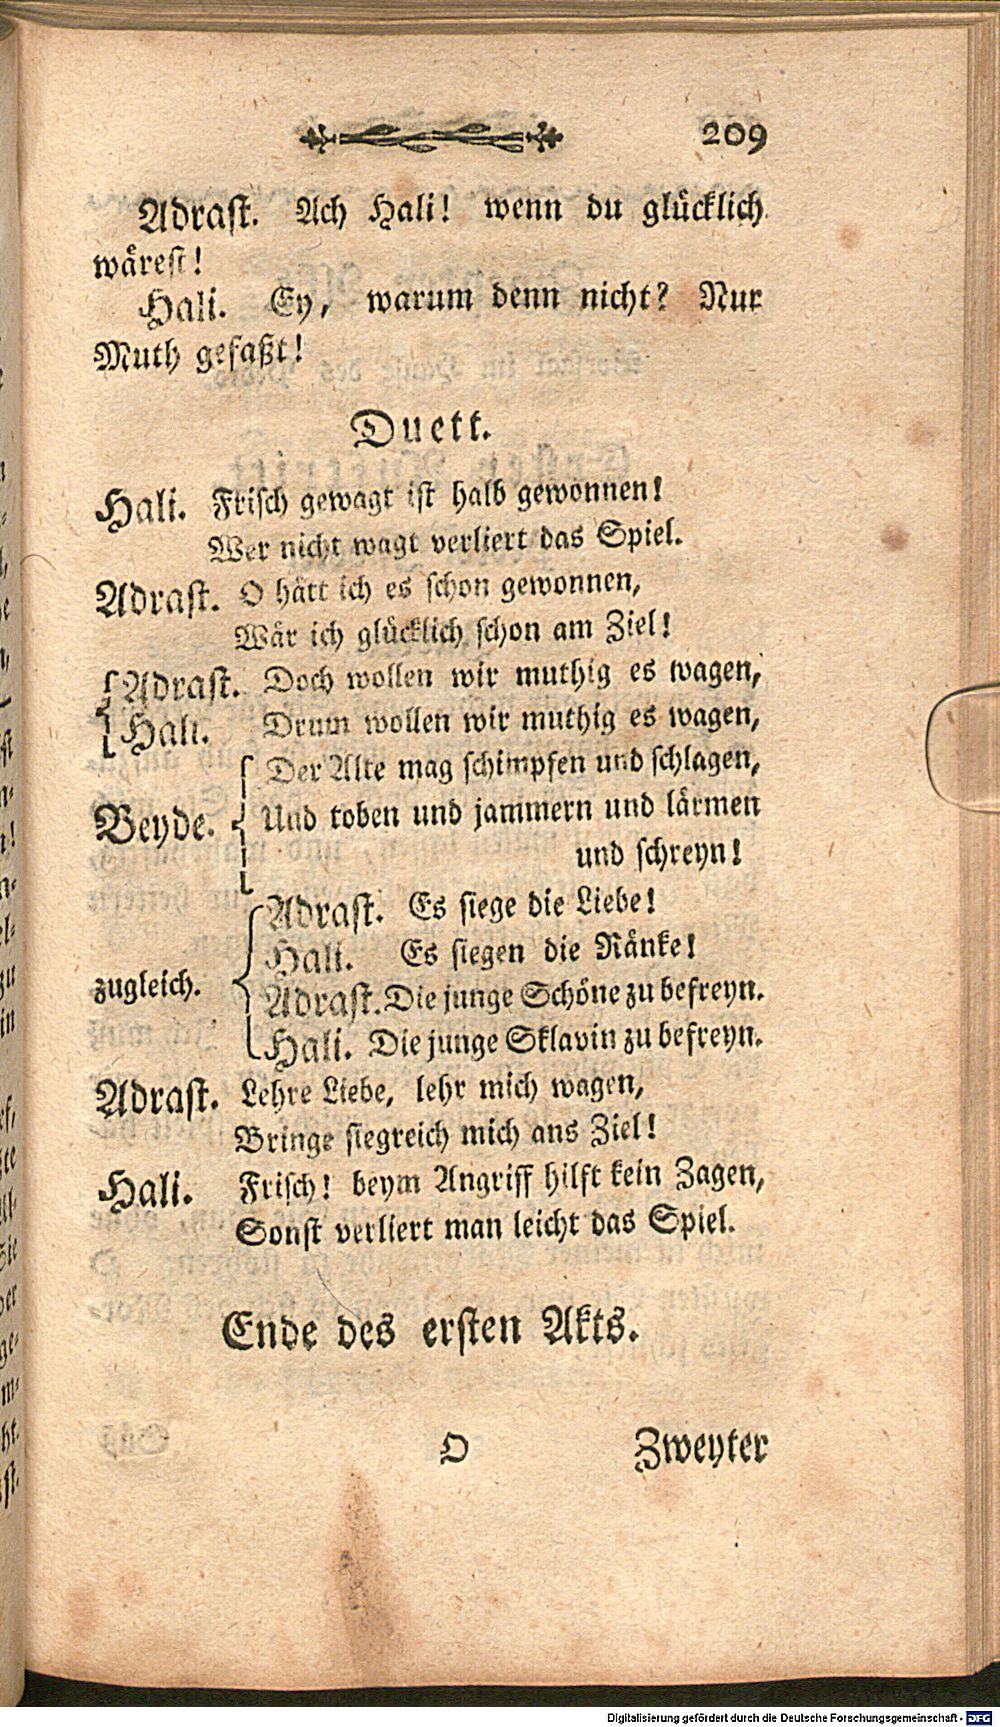 209
Adrast. Ach Hali! wenn du glücklich
wärest!
Hali. Ey, warum denn nicht? Nur
Muth gefaßt!
Duett.
Hali. Frisch gewagt ist halb gewonnen!
Wer nicht wagt verliert das Spiel.
Adrast. O hätt ich es schon gewonnen,
Wär ich glücklich schon am Ziel!
Adrast. Doch wollen wir muthig es wagen,
Hali. Drum wollen wir muthig es wagen,
Der Alte mag schimpfen und schlagen,
Beyde. Und toben und jammern und lärmen
und schreyn!
Adrast. Es siege die Liebe!
Hali. Es siegen die Ränke!
zugleich.
Adrast. Die junge Schöne zu befreyn.
Hali. Die junge Sklavin zu befreyn.
Adrast. Lehre Liebe, lehr mich wagen,
Bringe siegreich mich ans Ziel!
Hali. Frisch! beym Angriff hilft kein Zagen,
Sonst verliert man leicht das Spiel.
Ende des ersten Akts.
O Zweyter
Digitalisierung gefördert durch die Deutsche Forschungsgemeinschaft - DFG